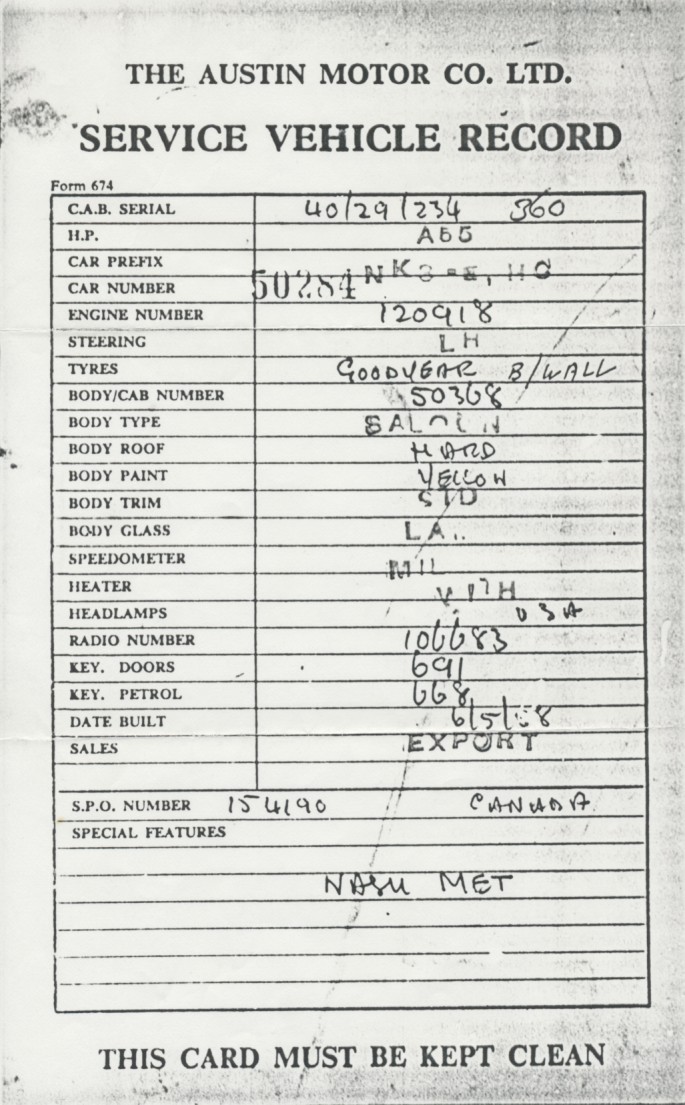 THE AUSTIN MOTOR CO. LTD.
SERVICE VEHICLE RECORD
Form 674
C.A.B. SERIAL 40/29/234 360
H.P. A55
CAR PREFIX
CAR NUMBER 50284
ENGINE NUMBER 120918
STEERING LH
TYRES GOODYEAR B/WALL
BODY/CAB NUMBER 50368
BODY TYPE SALOON
BODY ROOF HARD
BODY PAINT YELLOW
BODY TRIM STD
BODY GLASS
SPEEDOMETER
HEATER WITH
HEADLAMPS USA
RADIO NUMBER 106683
KEY. DOORS 691
KEY. PETROL 668
DATE BUILT 6/5/58
SALES EXPORT
S.P.O. NUMBER 154190 CANADA
SPECIAL FEATURES
NASH MET
THIS CARD MUST BE KEPT CLEAN